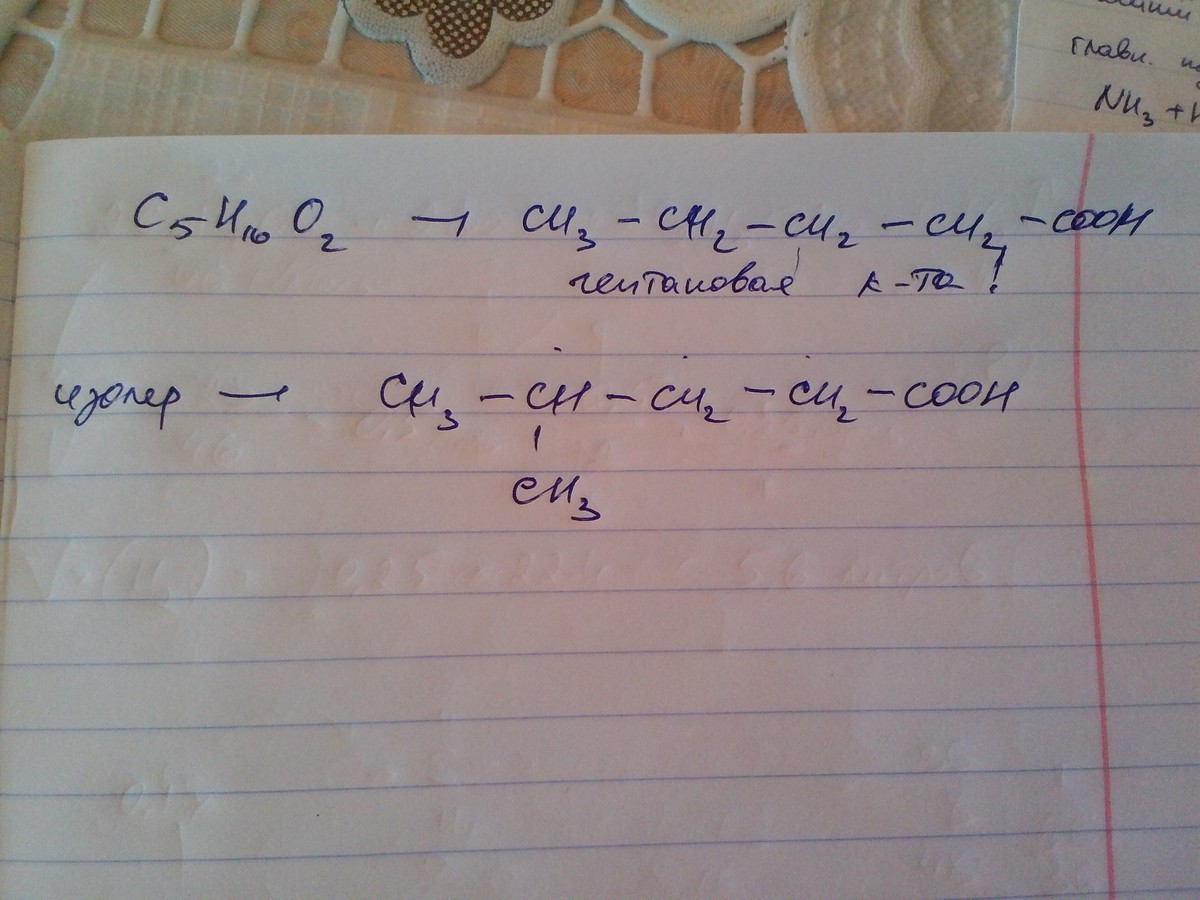 главн.
NH₃ +
C₅H₁₀O₂ → CH₃ – CH₂ – CH₂ – CH₂ – COOH
пентановая к-та!
изомер → CH₃ – CH – CH₂ – CH₂ – COOH
CH₃